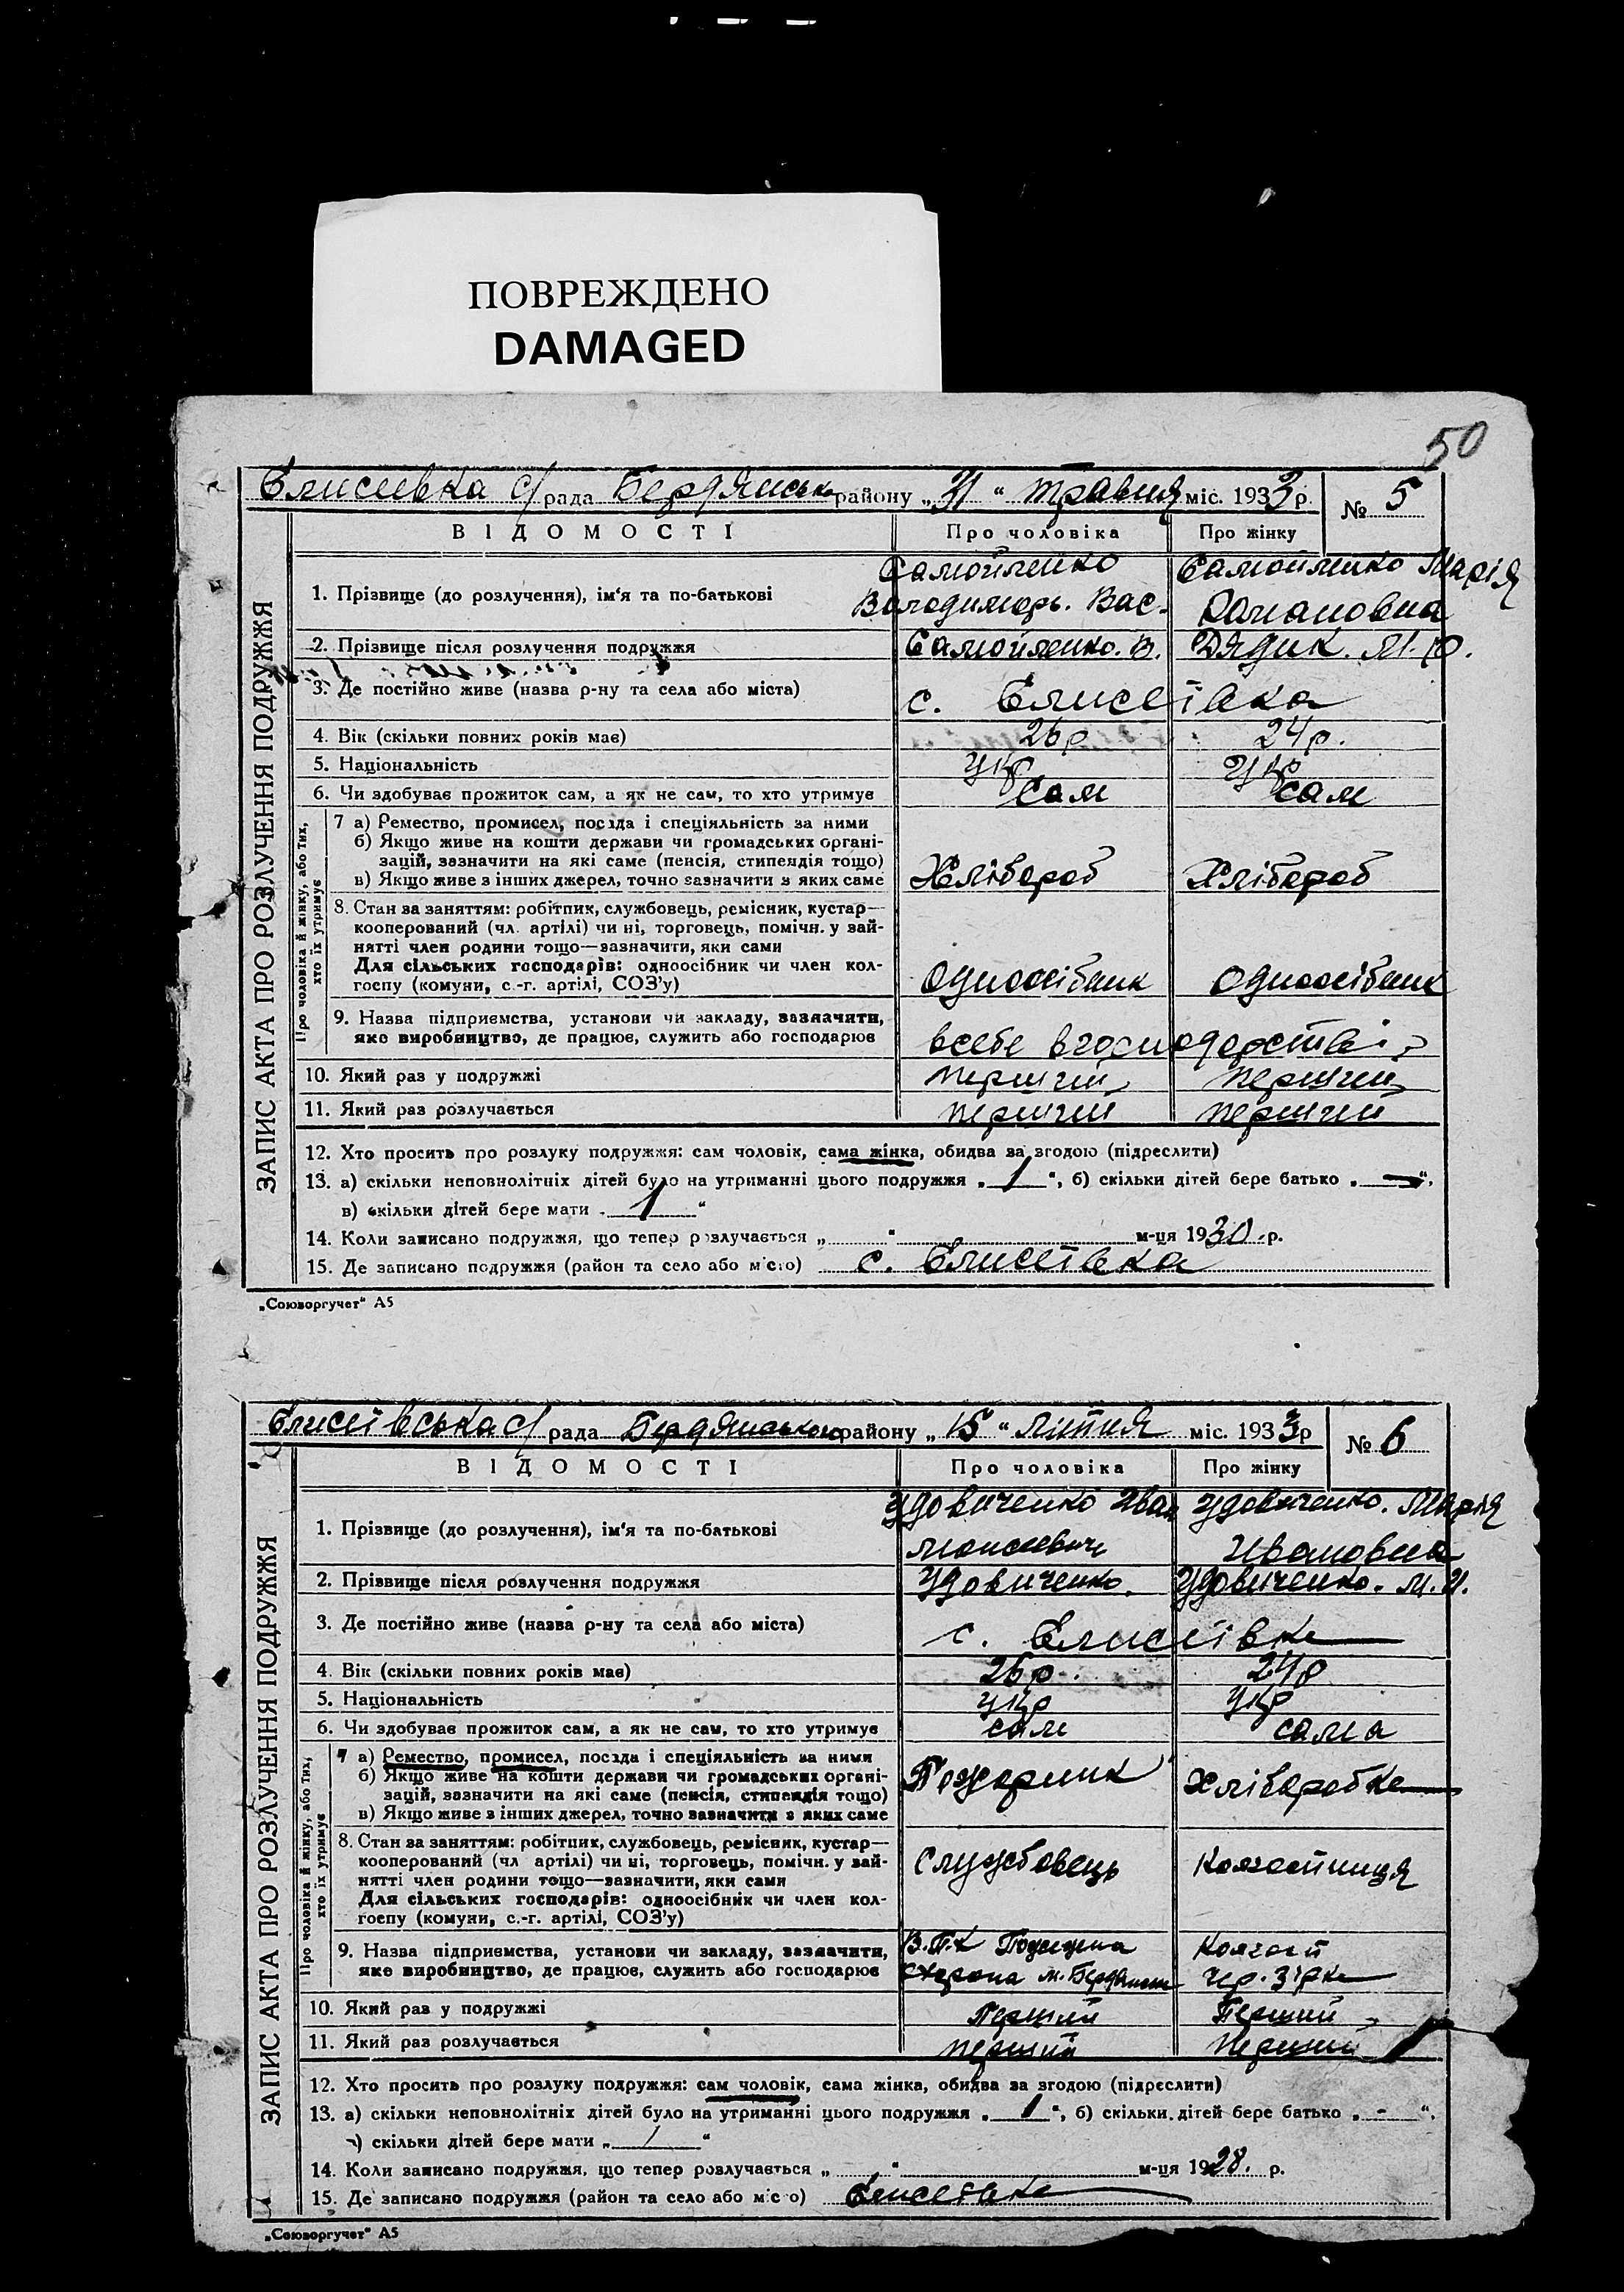 ПОВРЕЖДЕНО
DAMAGED
50
Єлисіївка с/рада Бердянськ району „31“ травня міс. 1933 р. № 5
ВІДОМОСТІ Про чоловіка Про жінку
ЗАПИС АКТА ПРО РОЗЛУЧЕННЯ ПОДРУЖЖЯ
1. Прізвище (до розлучення), ім'я та по-батькові Самойленко Самойленко Марія
Володимирь. Вас. Романовна
2. Прізвище після розлучення подружжя Самойленко. В. Дядик. М. Р.
3. Де постійно живе (назва р-ну та села або міста) с. Єлисеївка
4. Вік (скільки повних років має) 26 р 24 р.
5. Національність Укр Укр
6. Чи здобуває прожиток сам, а як не сам, то хто утримує Сам сам
Про чоловіка й жінку, або тих,
хто їх утримує
7 а) Ремество, промисел, посада і спеціяльність за ними
б) Якщо живе на кошти держави чи громадських органі-
зацій, зазначити на які саме (пенсія, стипендія тощо)
в) Якщо живе з інших джерел, точно зазначити з яких саме Хлібороб Хлібороб
8. Стан за заняттям: робітник, службовець, ремісник, кустар—
кооперований (чл. артілі) чи ні, торговець, помічн. у зай-
нятті член родини тощо—зазначити, яки сами
Для сільських господарів: одноосібник чи член кол-
госпу (комуни, с.-г. артілі, СОЗ'у) Одноосібник Одноосібник
9. Назва підприємства, установи чи закладу, зазначити,
яке виробництво, де працює, служить або господарює всебе вгосподарстві
10. Який раз у подружжі першій першій
11. Який раз розлучається першій першій
12. Хто просить про розлуку подружжя: сам чоловік, сама жінка, обидва за згодою (підреслити)
13. а) скільки неповнолітніх дітей було на утриманні цього подружжя „ 1 “, б) скільки дітей бере батько „ — “,
в) скільки дітей бере мати „ 1 “
14. Коли записано подружжя, що тепер розлучається „ “ м-ця 1930 .р.
15. Де записано подружжя (район та село або місто) с. Єлисеївка
„Союзоргучет“ А5
Єлисеївська с/рада Бердянського району „15“ липня міс. 1933 р № 6
ВІДОМОСТІ Про чоловіка Про жінку
ЗАПИС АКТА ПРО РОЗЛУЧЕННЯ ПОДРУЖЖЯ
1. Прізвище (до розлучення), ім'я та по-батькові Удовиченко Иван Удовиченко. Марія
Моисеевич Ивановна
2. Прізвище після розлучення подружжя Удовиченко. Удовиченко. М. И.
3. Де постійно живе (назва р-ну та села або міста) с. Єлисеївка
4. Вік (скільки повних років має) 26 р. 24 р
5. Національність укр укр
6. Чи здобуває прожиток сам, а як не сам, то хто утримує сам сама
Про чоловіка й жінку, або тих,
хто їх утримує
7 а) Ремество, промисел, посада і спеціяльність за ними
б) Якщо живе на кошти держави чи громадських органі-
зацій, зазначити на які саме (пенсія, стипендія тощо)
в) Якщо живе з інших джерел, точно зазначити з яких саме Пожарник Хліборобка
8. Стан за заняттям: робітник, службовець, ремісник, кустар—
кооперований (чл артілі) чи ні, торговець, помічн. у зай-
нятті член родини тощо—зазначити, яки сами
Для сільських господарів: одноосібник чи член кол-
госпу (комуни, с.-г. артілі, СОЗ'у) Службовець Колгоспниця
9. Назва підприємства, установи чи закладу, зазначити, В.П.К Колгосп
яке виробництво, де працює, служить або господарює Охорона м. Бердянськ чер. зірка
10. Який раз у подружжі Перший Перший
11. Який раз розлучається перший перший
12. Хто просить про розлуку подружжя: сам чоловік, сама жінка, обидва за згодою (підреслити)
13. а) скільки неповнолітніх дітей було на утриманні цього подружжя „ 1 “, б) скільки дітей бере батько „ - “,
в) скільки дітей бере мати „ 1 “
14. Коли записано подружжя, що тепер розлучається „ “ м-ця 1928. р.
15. Де записано подружжя (район та село або місто) Єлисеївка
„Союзоргучет“ А5